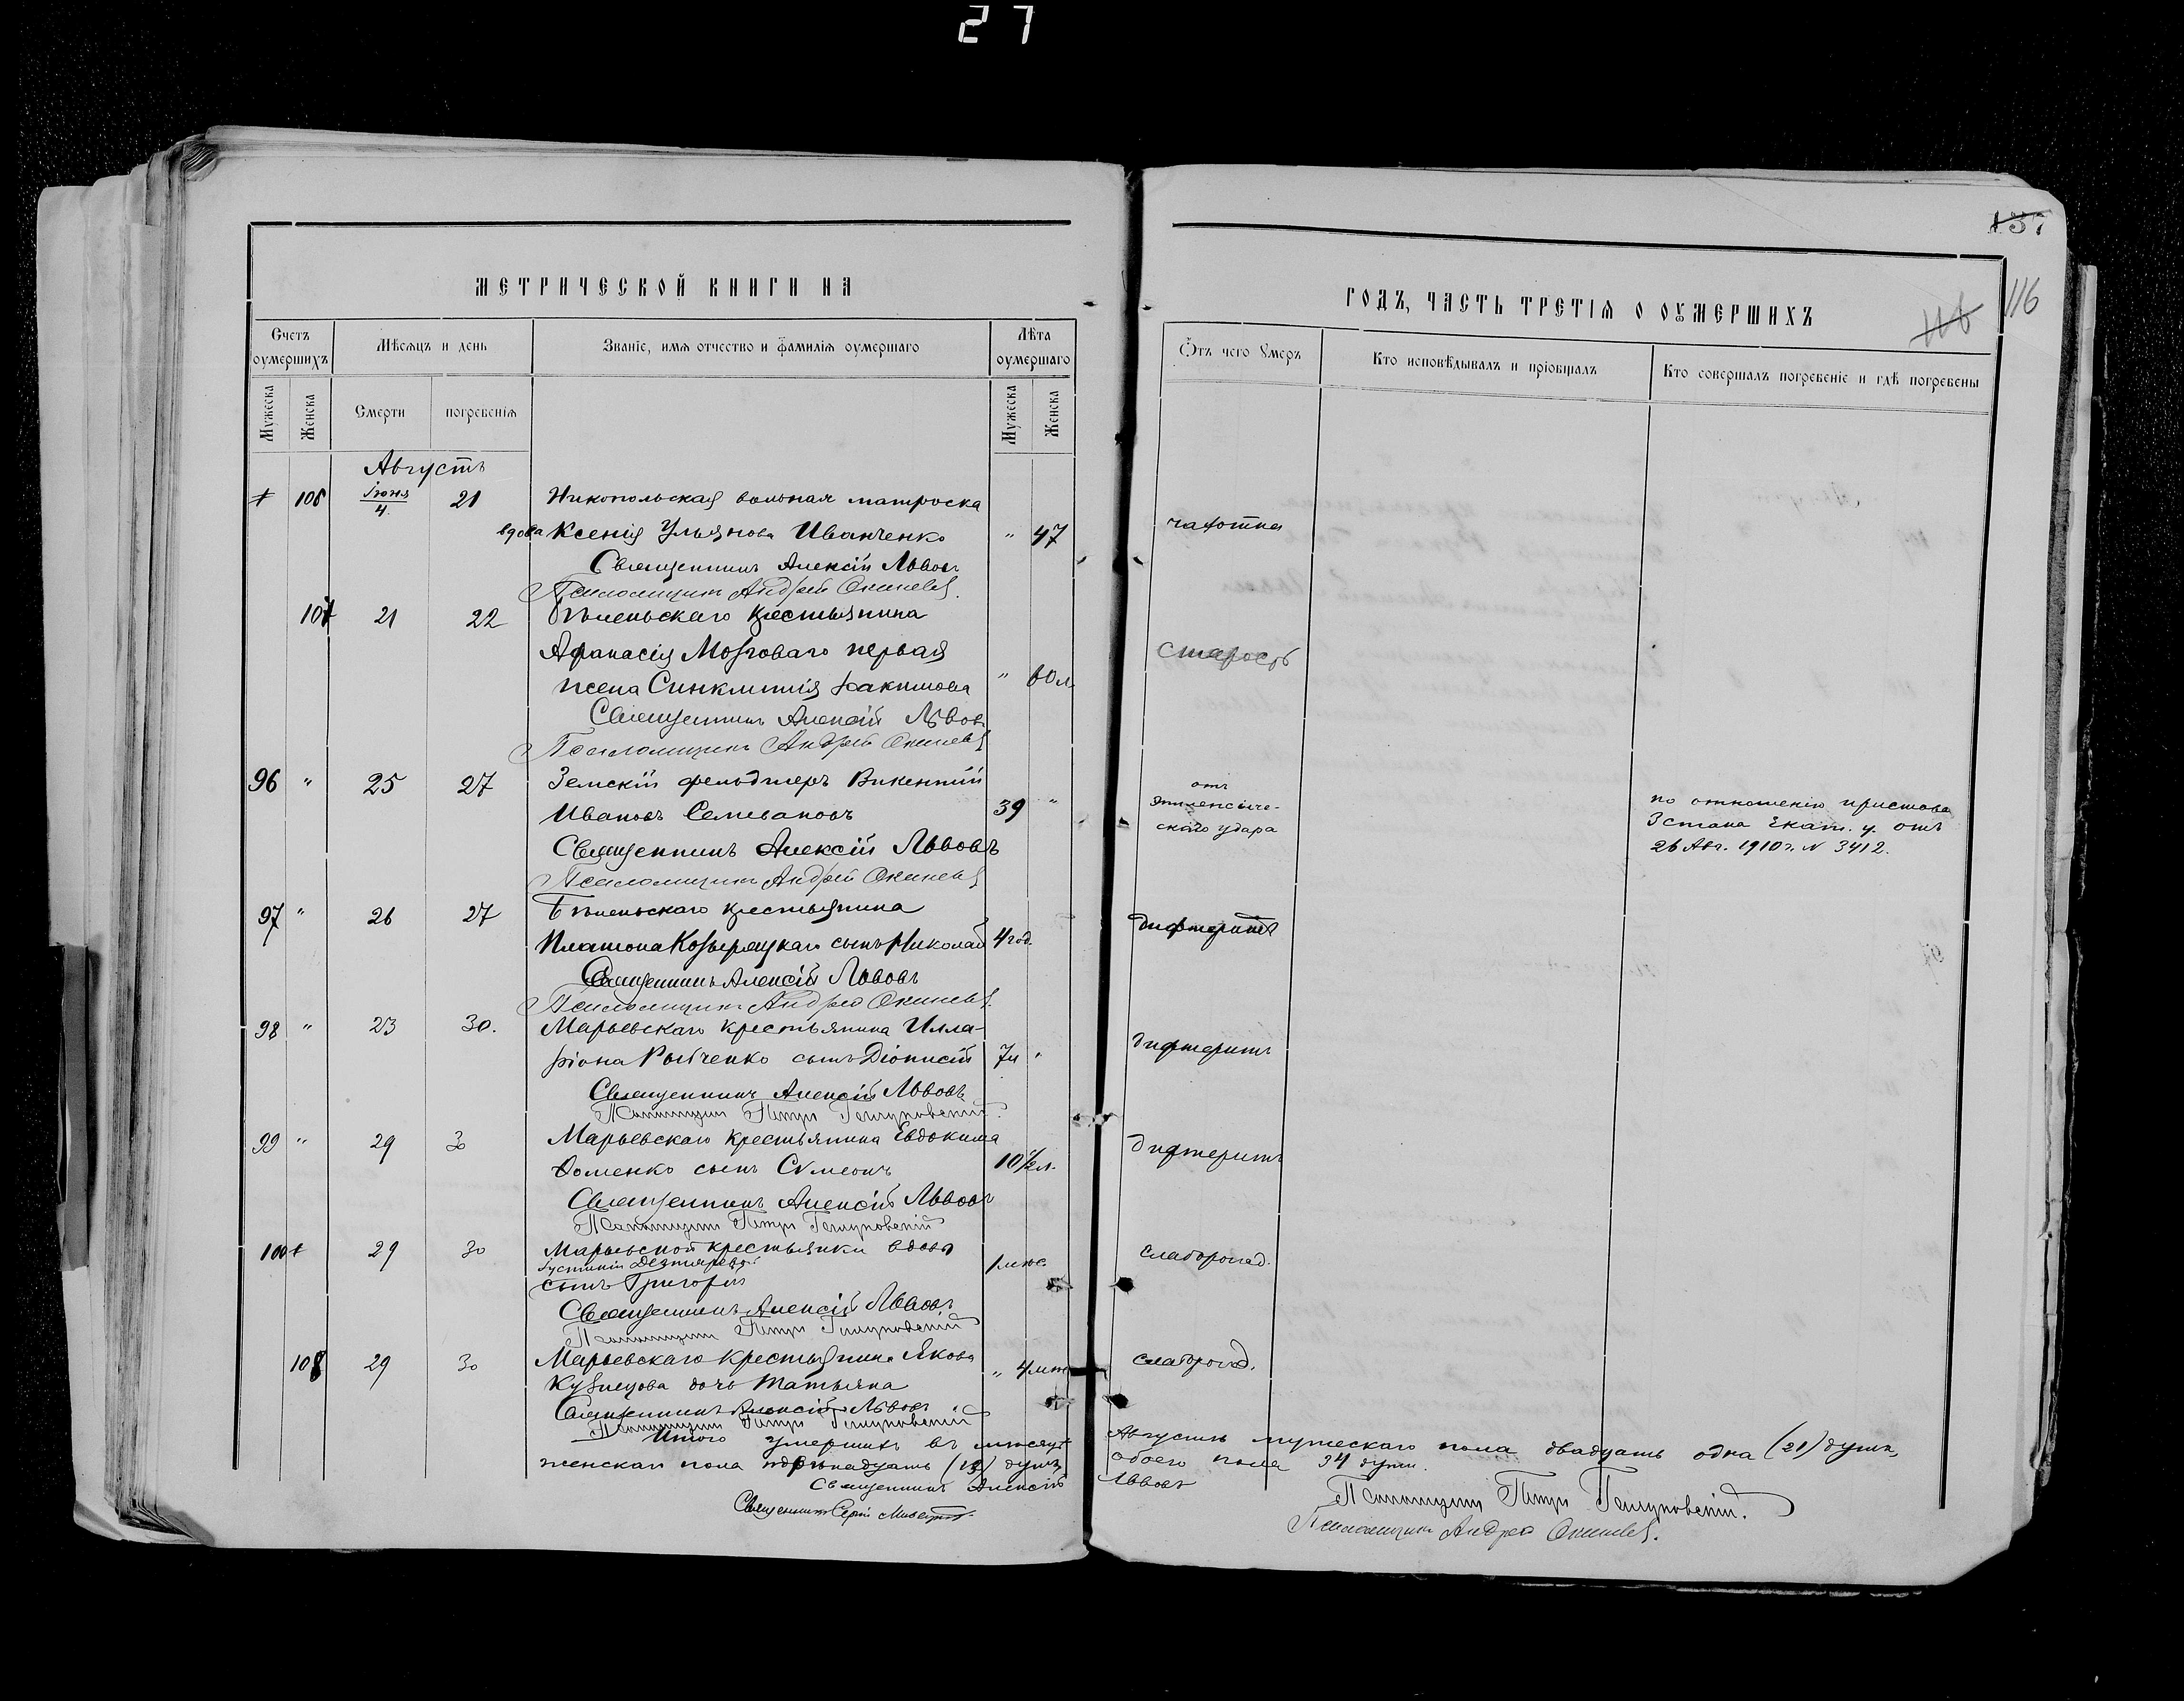 27
137
116
116
МЕТРИЧЕСКОЙ КНИГИ НА
ГОДЪ, ЧАСТЬ ТРЕТІЯ О ОУМЕРШИХЪ
Счетъ оумершихъ
Мѣсяцъ и день
Званіе, имя отчество и фамилія оумершаго
Лѣта оумершаго
Мужеска
Женска
Смерти
погребенія
Мужеска
Женска
Отъ чего Умеръ
Кто исповѣдывалъ и пріобщалъ
Кто совершалъ погребеніе и гдѣ погребены
Августъ
106 Іюня 4. 21 Никопольская вольная матроска
вдова Ксенія Ульянова Иванченко " 47 чахотка
Священникъ Алексій Львовъ
Псаломщикъ Андрей
107 21 22 Бѣленьскаго крестьянина
Афанасія Мозговаго первая старость
жена Синклитія Іакимова " 60 л.
Священникъ Алексій Львовъ
Псаломщикъ Андрей
96 " 25 27 Земскій фельдшеръ Викентій
Ивановъ Селивановъ 39 "
отъ
эпилепсиче-
скаго удара
по отношенію пристава
3 стана Екат. у. отъ
26 Авг. 1910 г. № 3412.
Священникъ Алексій Львовъ
Псаломщикъ Андрей
97 " 26 27 Бѣленьскаго крестьянина
Платона сынъ Николай 4 год. дифтеритъ
Священникъ Алексій Львовъ
Псаломщикъ Андрей
98 " 23 30. Марьевскаго крестьянина Илла-
ріона сынъ Діонисій 7 л " дифтеритъ
Священникъ Алексій Львовъ
Псаломщикъ Петръ
99 " 29 30 Марьевскаго крестьянина Евдокима
Фоменко сынъ Сѵмеонъ 10 ½ л. дифтеритъ
Священникъ Алексій Львовъ
Псаломщикъ Петръ
100 29 30 Марьевской крестьянки вдовы
Іустиніи Дегтяревой
сынъ Григорій 1 мѣс. слаборожд.
Священникъ Алексій Львовъ
Псаломщикъ Петръ
108 29 30 Марьевскаго крестьянина Якова
Кузнецова дочь Татьяна " 4 слаборожд.
Священникъ Алексій Львовъ
Псаломщикъ Петръ
Итого умершихъ въ мѣсяцѣ Августѣ мужескаго пола двадцать одна (21) душа,
женскаго пола (13) душъ, обоего пола 34 души.
Священникъ Алексій Львовъ
Псаломщикъ Петръ
Священникъ Сергій
Псаломщикъ Андрей